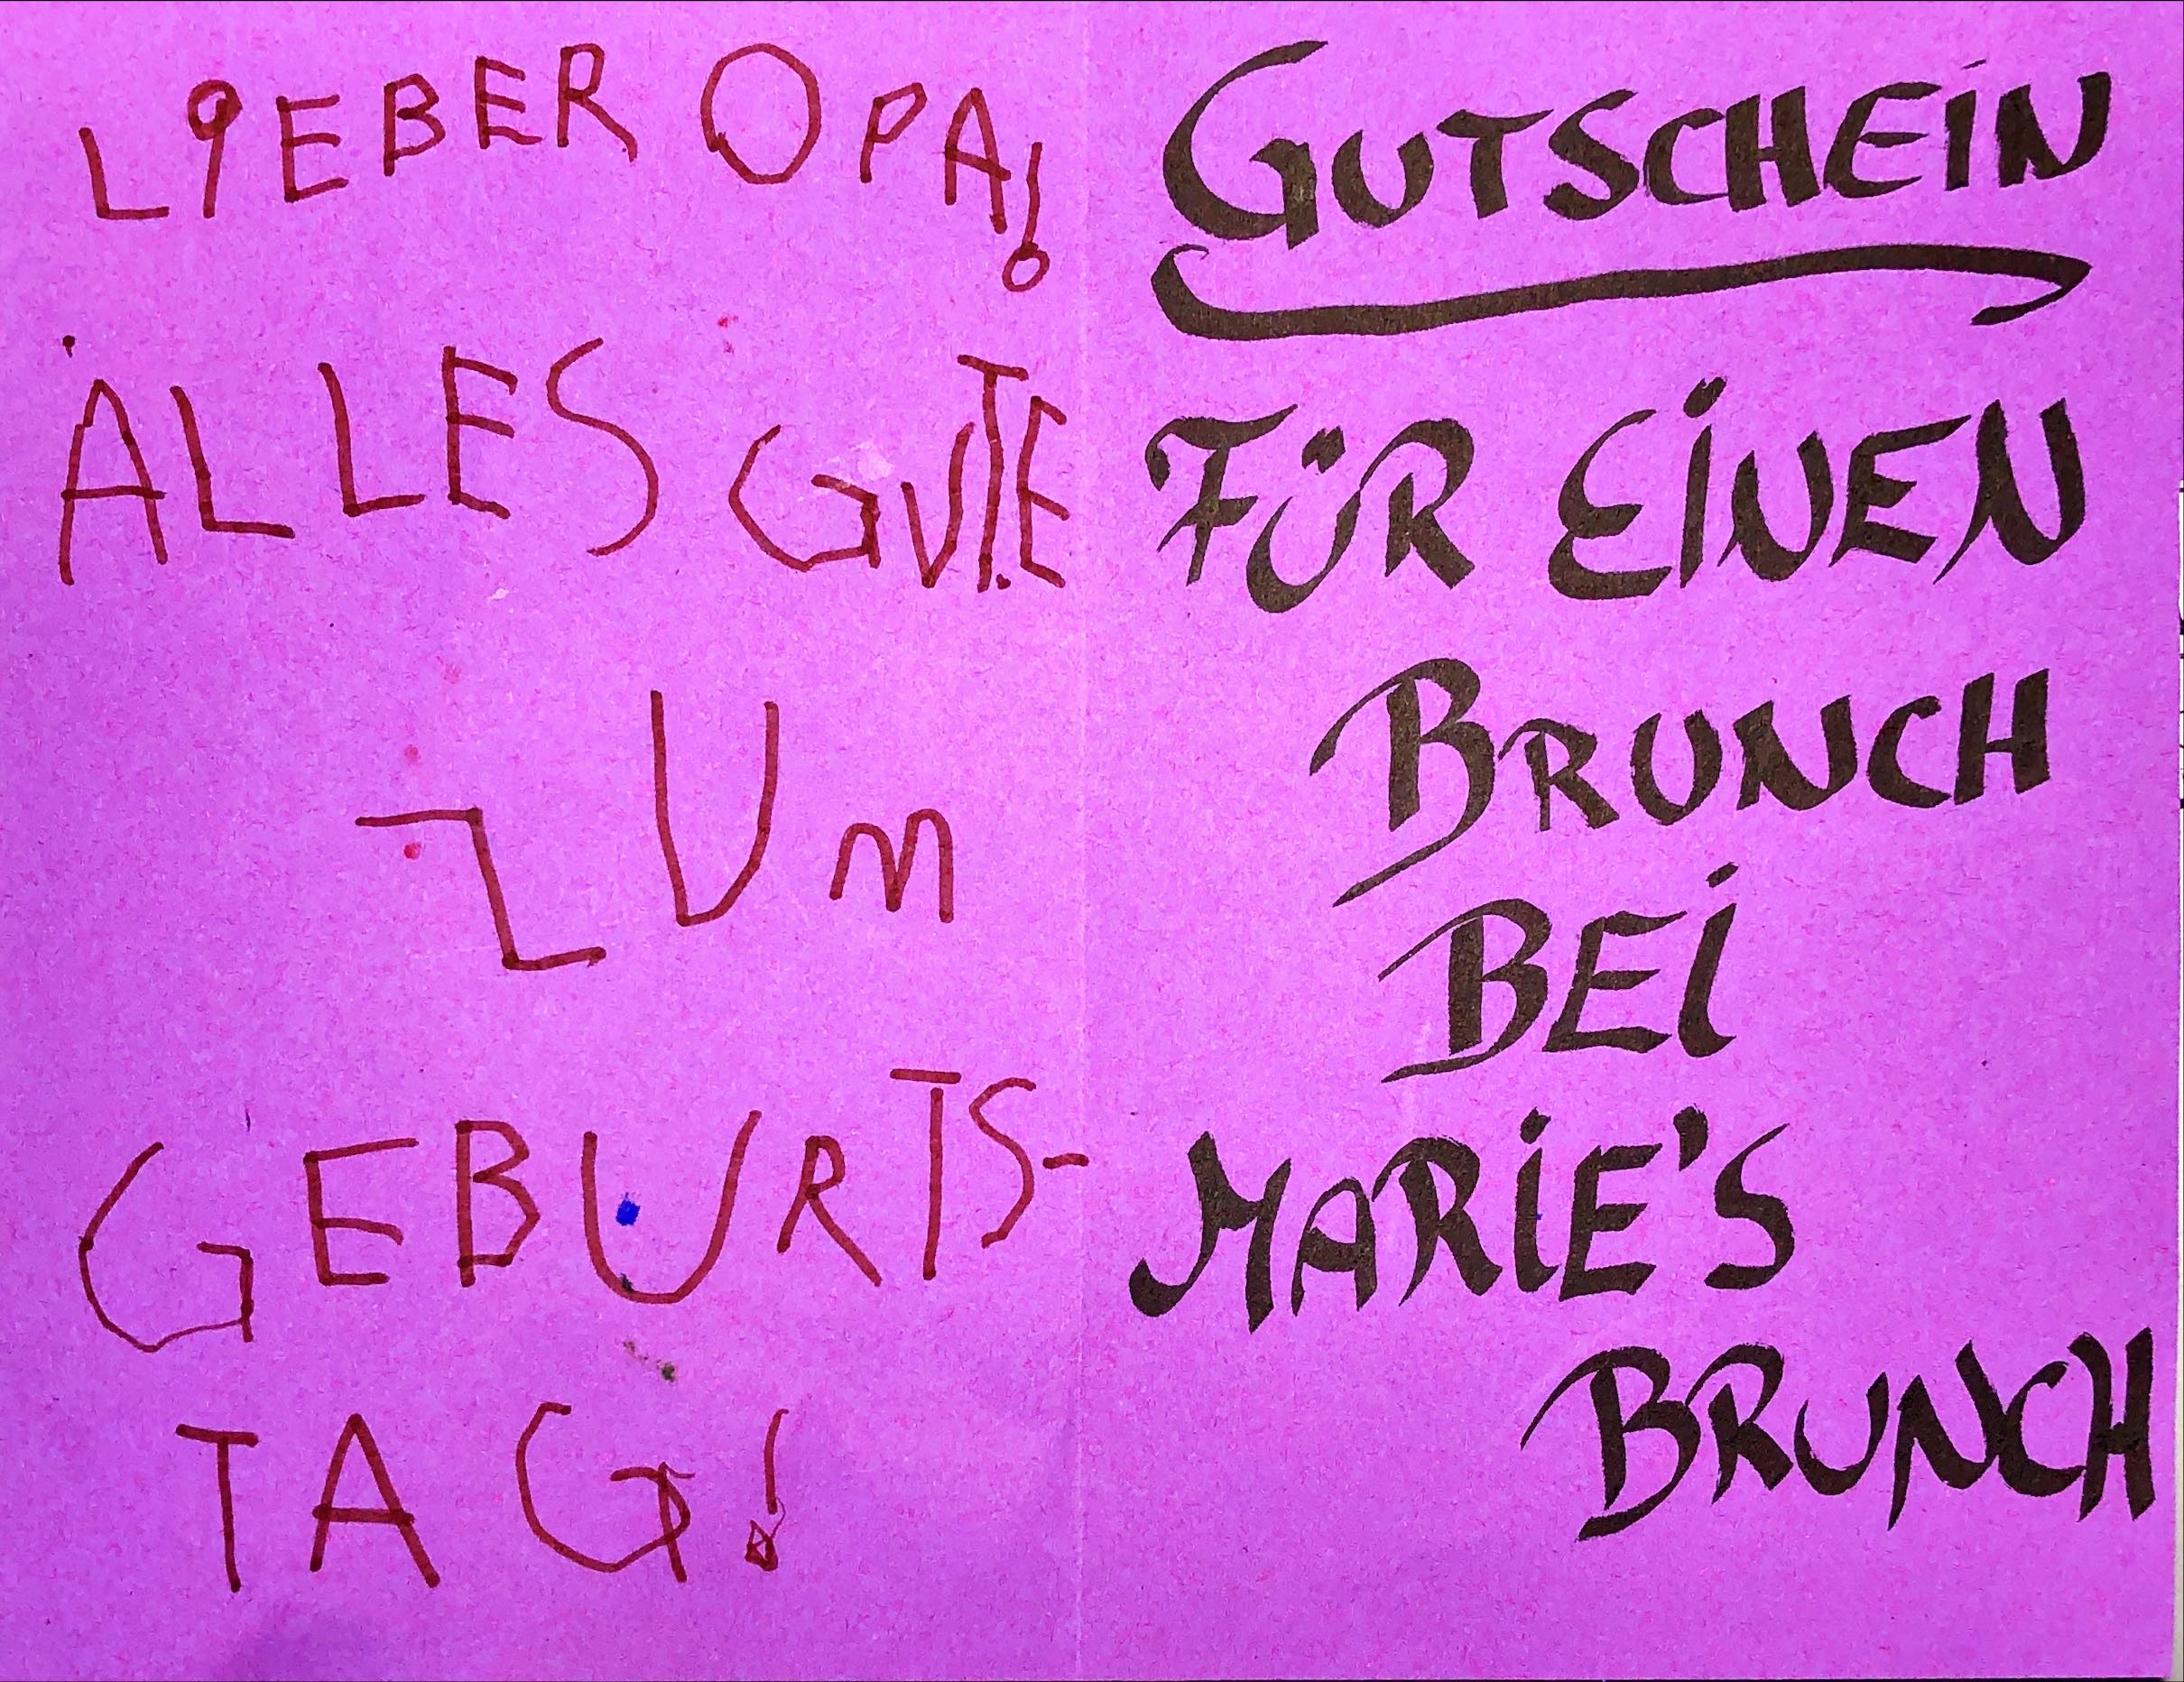 LIEBER OPA!
ALLES GUTE
ZUM
GEBURTS-
TAG!
GUTSCHEIN
FÜR EINEN
BRUNCH
BEI
MARIE'S
BRUNCH